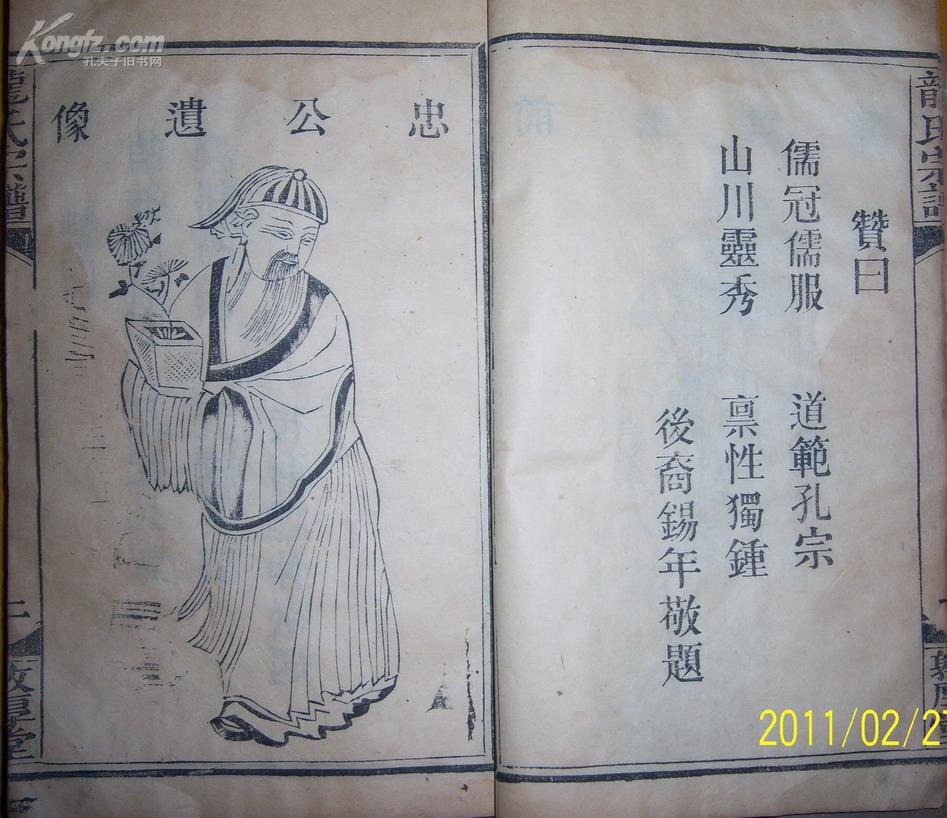 贊曰
儒冠儒服 道範孔宗
山川靈秀 禀性獨鍾
後裔錫年敬題
忠公遺像
龍氏宗譜
龍氏宗譜
敦厚堂
Kongfz.com
孔夫子旧书网
2011/02/27